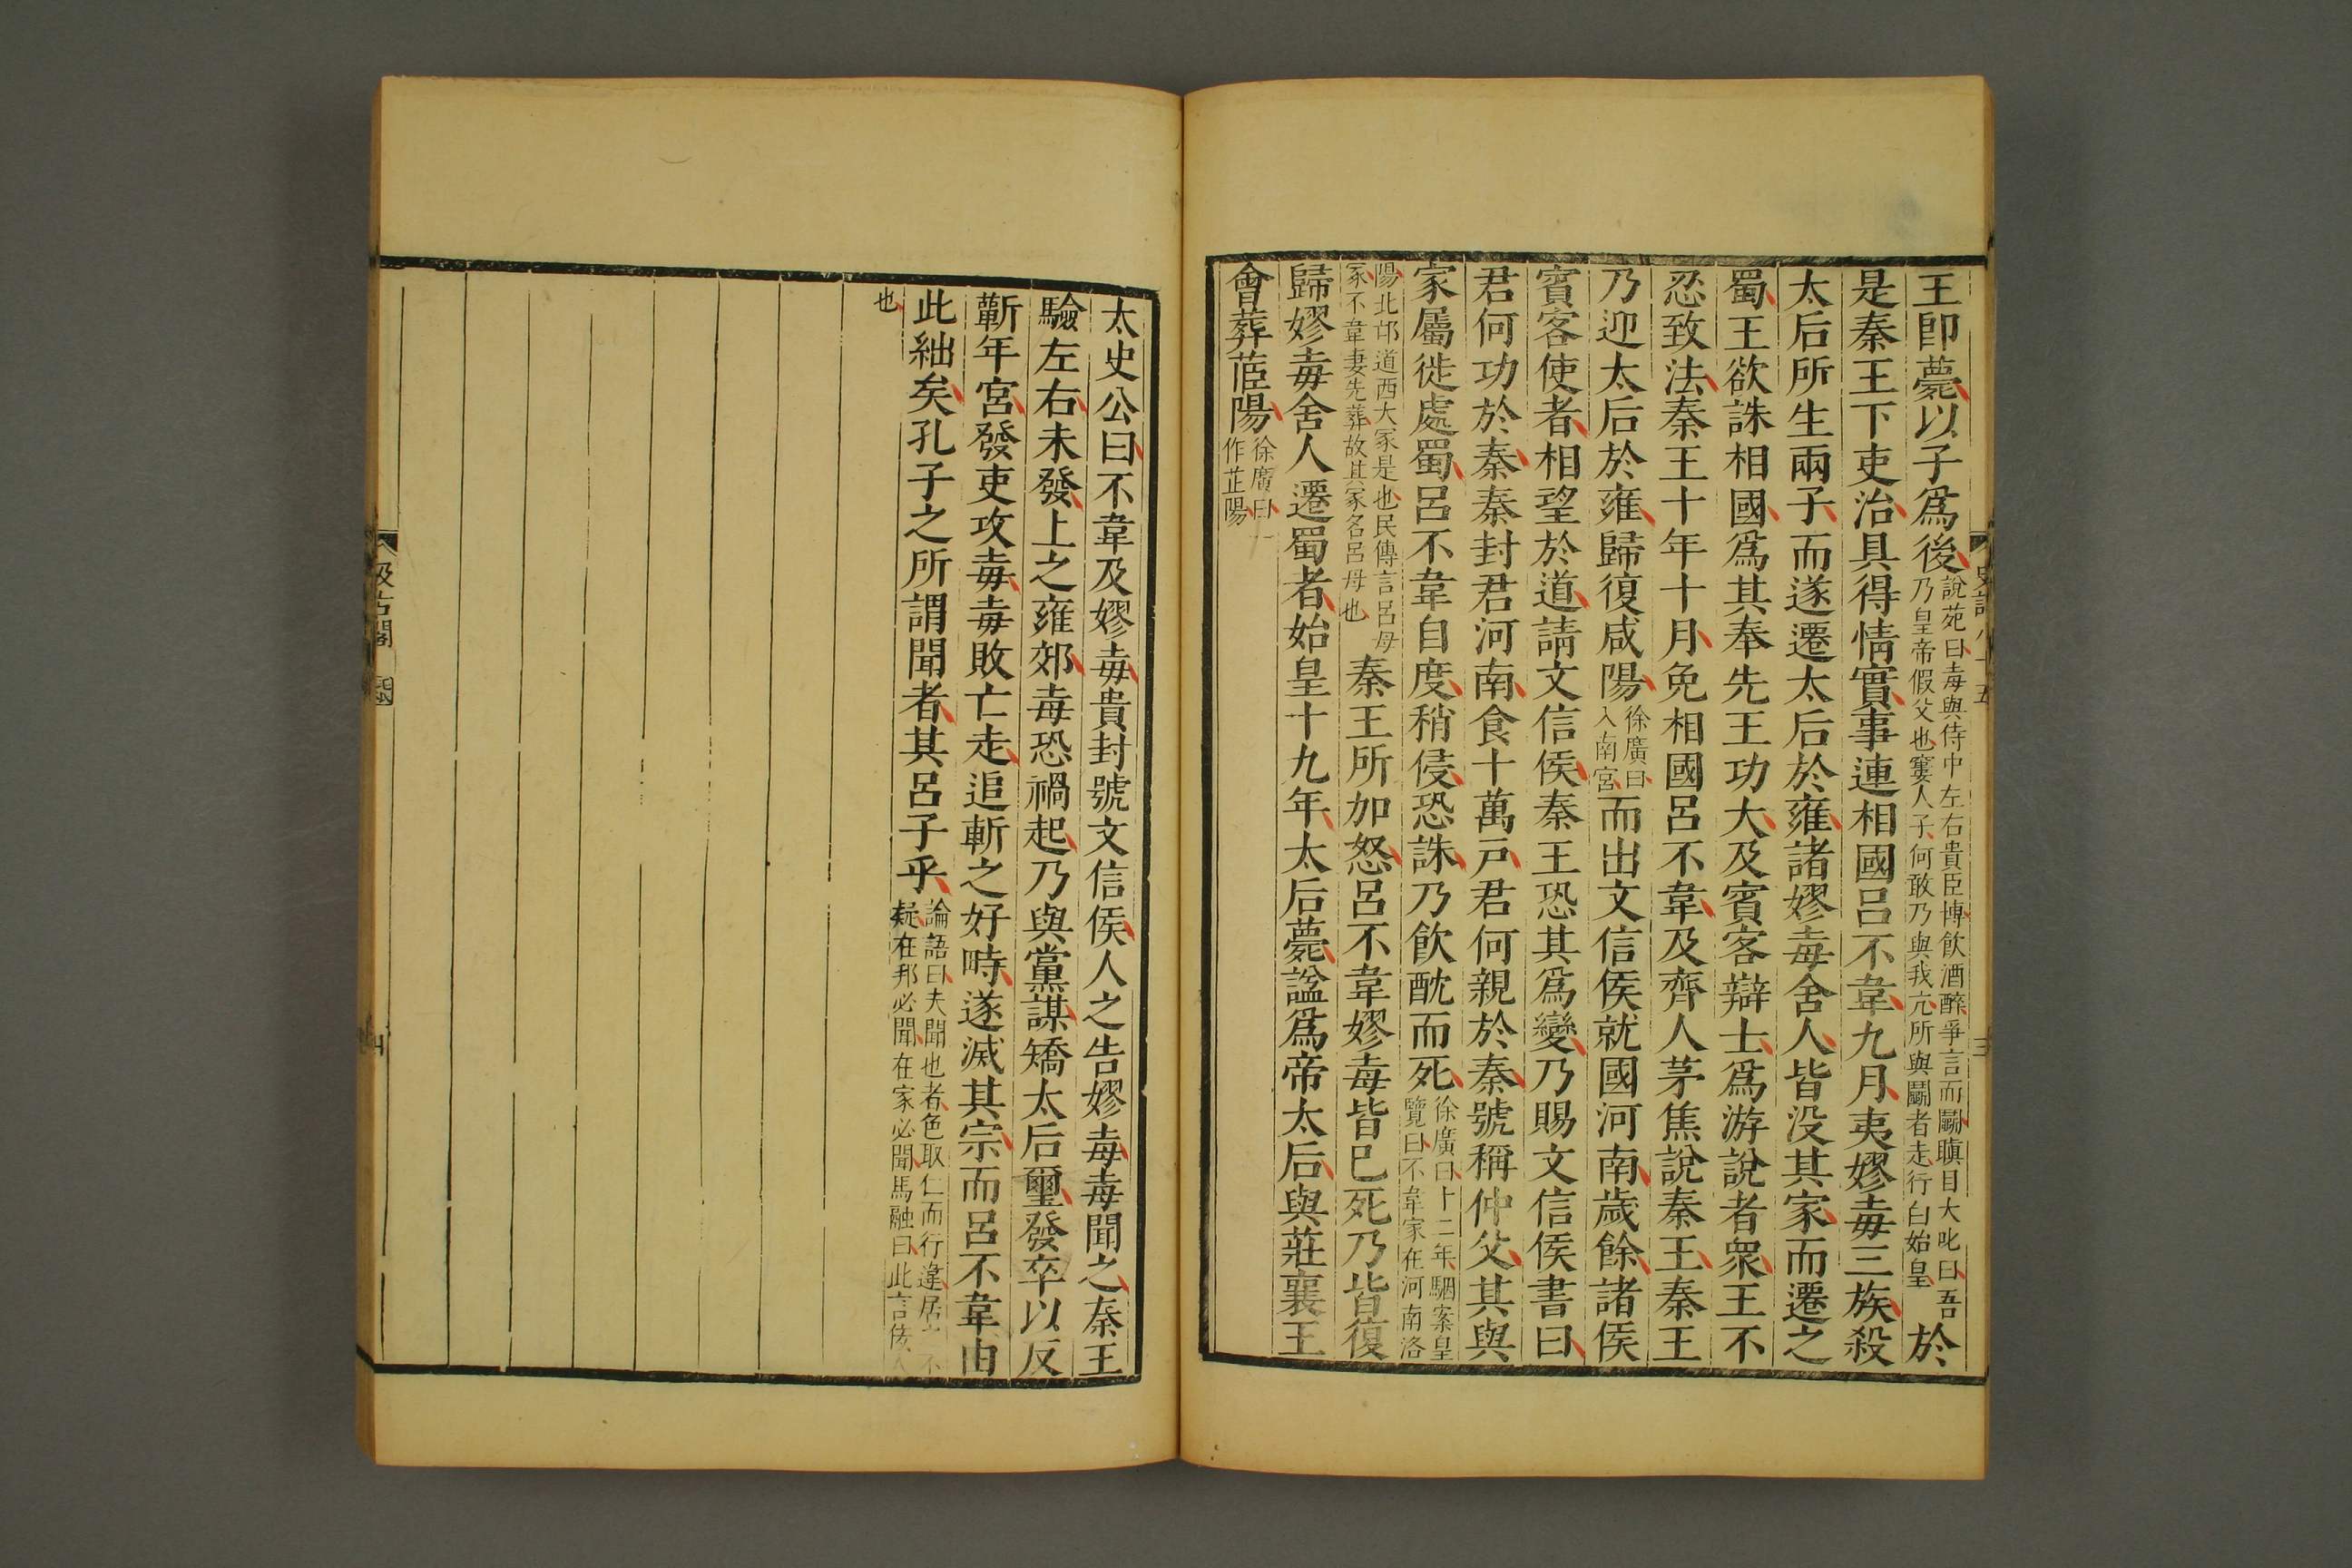 王卽薨以子爲後說苑曰毐與侍中左右貴臣博飲酒醉爭言而鬬瞋目大叱曰吾乃皇帝假父也窶人子何敢乃與我亢所與鬬者走行白始皇於
是秦王下吏治具得情實事連相國呂不韋九月夷嫪毐三族殺
太后所生兩子而遂遷太后於雍諸嫪毐舍人皆没其家而遷之
蜀王欲誅相國爲其奉先王功大及賓客辯士爲游說者衆王不
忍致法秦王十年十月免相國呂不韋及齊人茅焦說秦王秦王
乃迎太后於雍歸復咸陽徐廣曰入南宮而出文信侯就國河南歲餘諸侯
賓客使者相望於道請文信侯秦王恐其爲變乃賜文信侯書曰
君何功於秦秦封君河南食十萬戸君何親於秦號稱仲父其與
家屬徙處蜀呂不韋自度稍侵恐誅乃飲酖而死徐廣曰十二年駰案皇覽曰不韋冢在河南洛
陽北邙道西大冢是也民傳言呂母冢不韋妻先葬故其冢名呂母也秦王所加怒呂不韋嫪毐皆已死乃皆復
歸嫪毐舍人遷蜀者始皇十九年太后薨諡爲帝太后與莊襄王
會葬茝陽徐廣曰一作芷陽
史記八十五
三
太史公曰不韋及嫪毐貴封號文信侯人之告嫪毐毐聞之秦王
驗左右未發上之雍郊毐恐禍起乃與黨謀矯太后璽發卒以反
蘄年宮發吏攻毐毐敗亡走追斬之好畤遂滅其宗而呂不韋由
此絀矣孔子之所謂聞者其呂子乎論語曰夫聞也者色取仁而行違居之不疑在邦必聞在家必聞馬融曰此言佞人
也
汲古閣